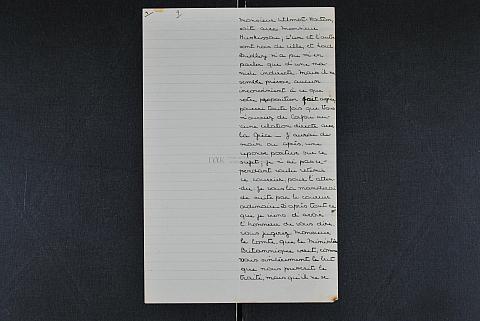 Monsieur Wilmot-Horton,
soit avec Monsieur
Huskisson; l'un et l'autre
sont hors de ville, et Lord
Dudley n'a pu m'en
parler que d'une ma-
nière indirecte. Mais il ne
semble prévoir aucun
inconvénient à ce que
votre proposition soit agréée
pourvu toute fois que Vous
n'auriez de Corfou au-
cune relation directe avec
la Grèce — J'aurai de-
main ou après, une
reponse positive sur ce
sujet; je n'ai pas ce-
pendant voulu retenir
ce courrier pour l'atten-
dre. Je vous la manderai
de suite par le courrier
ordinaire. D'après tout ce
que je viens d'avoir
l'honneur de vous dire
vous jugerez Monsieur
le Comte que le Ministère
Britannique veut, comme
vous sincèrement le but
que nous prescrit le
traité, mais qu'il ne se